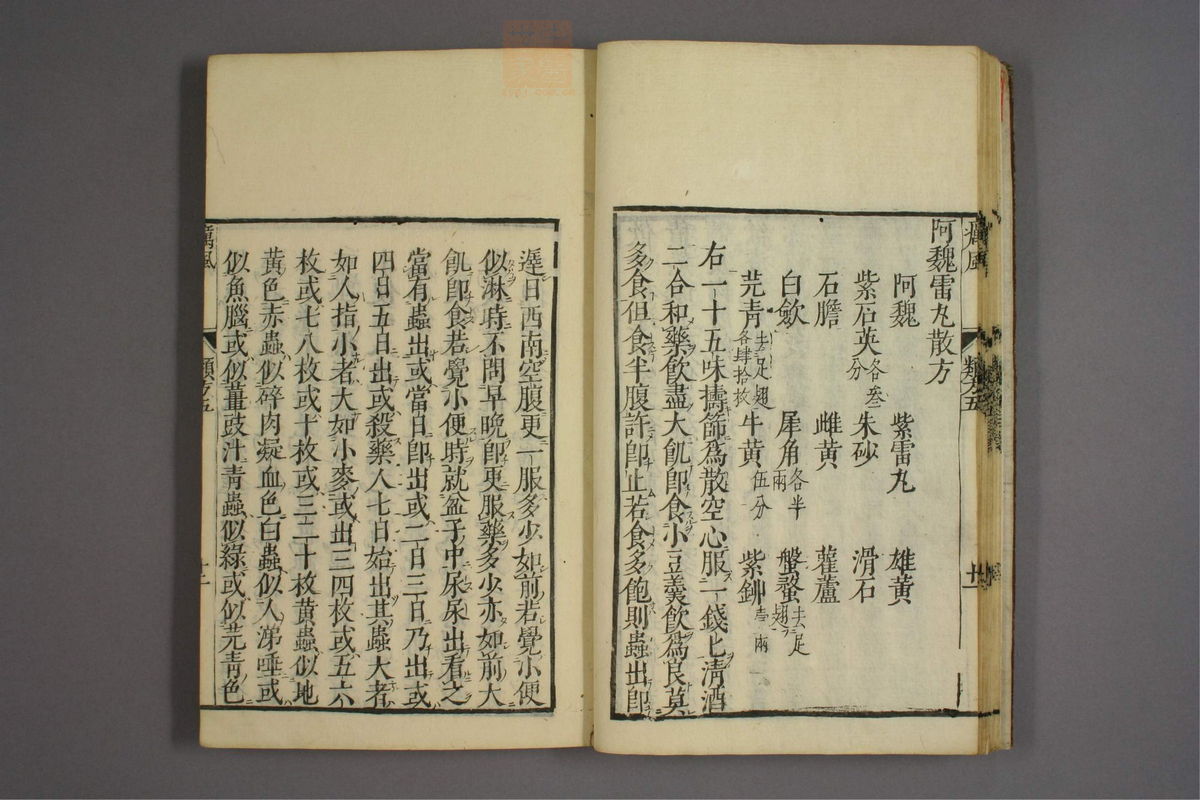 阿魏雷丸散方
阿魏 紫雷丸 雄黄
紫石英各叁分 朱砂 滑石
石膽 雌黄 雚蘆
白歛 犀角各半兩 盤蝥去足翅
芫青去足翅各肆拾枚 牛黄伍分 紫鉚壹兩
右一十五味擣篩爲散空心服一錢匕清酒
二合和藥飲盡大飢即食小豆羮飲爲良莫
多食但食半腹許即止若食多飽則蟲出即
癘風 類方五
遲日西南空腹更一服多少如前若覺小便
似淋時不問早晚即更服藥多少亦如前大
飢即食若覺小便時就盆子中尿尿出看之
當有蟲出或當日即出或二日三日乃出或
四日五日出或殺藥人七日始出其蟲大者
如人指小者大如小麥或出三四枚或五六
枚或七八枚或十枚或三二十枚黄蟲似地
黄色赤蟲似碎肉凝血色白蟲似人涕唾或
似魚腦或似薑豉汁青蟲似綠或似芫青色
癘風 類方五